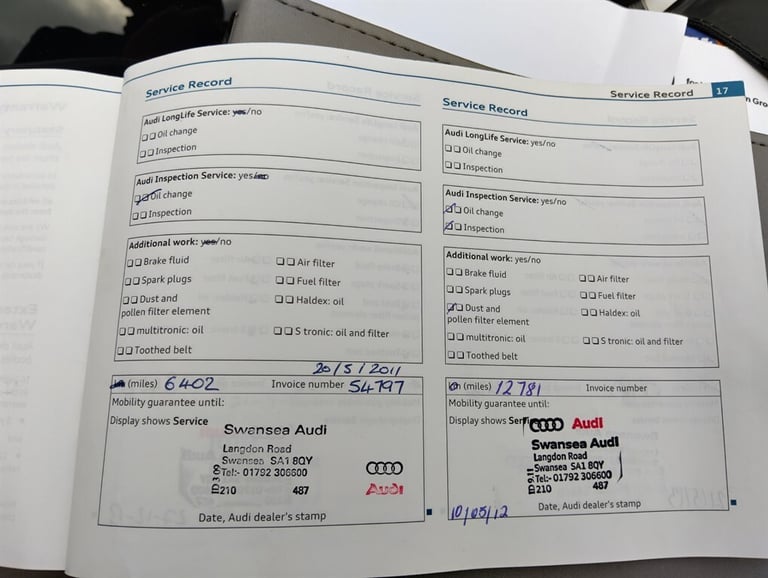 Service Record 17
Service Record
Audi LongLife Service: yes/no
Oil change
Inspection
Audi Inspection Service: yes/no
Oil change
Inspection
Additional work: yes/no
Brake fluid
Air filter
Spark plugs
Fuel filter
Dust and
pollen filter element
Haldex: oil
multitronic: oil
S tronic: oil and filter
Toothed belt
20/5/2011
(miles) 6402 Invoice number 54797
Mobility guarantee until:
Display shows Service
Swansea Audi
Langdon Road
Swansea SA1 8QY
Tel:- 01792 306600
210 487
Audi
Date, Audi dealer's stamp
Service Record
Audi LongLife Service: yes/no
Oil change
Inspection
Audi Inspection Service: yes/no
Oil change
Inspection
Additional work: yes/no
Brake fluid
Air filter
Spark plugs
Fuel filter
Dust and
pollen filter element
Haldex: oil
multitronic: oil
S tronic: oil and filter
Toothed belt
(miles) 12781 Invoice number
Mobility guarantee until:
Display shows
Audi
Swansea Audi
Langdon Road
Swansea SA1 8QY
Tel:- 01792 306600
210 487
10/05/12
Date, Audi dealer's stamp